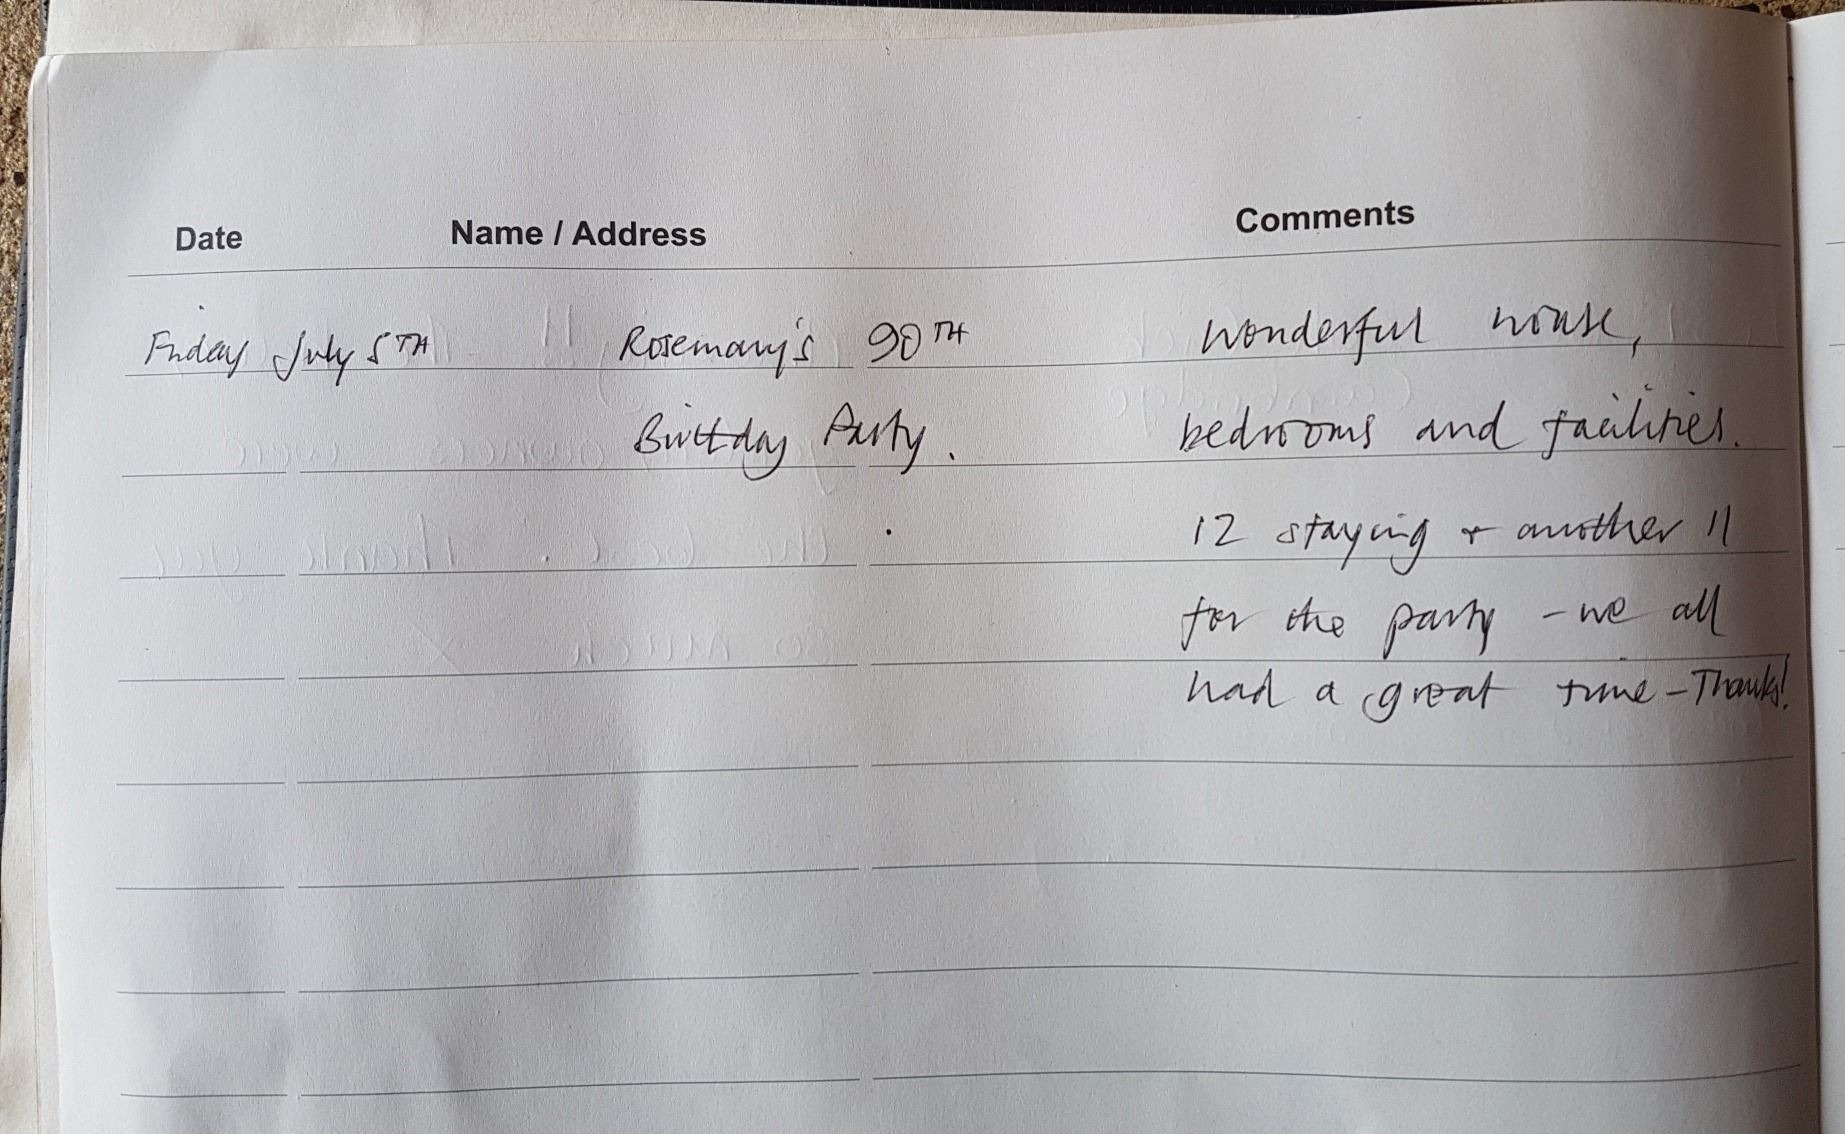 Date Name / Address Comments
Friday July 5TH Rosemary's 90TH Wonderful house,
Birthday Party. bedrooms and facilities.
12 staying + another 11
for the party - we all
had a great time - Thanks!